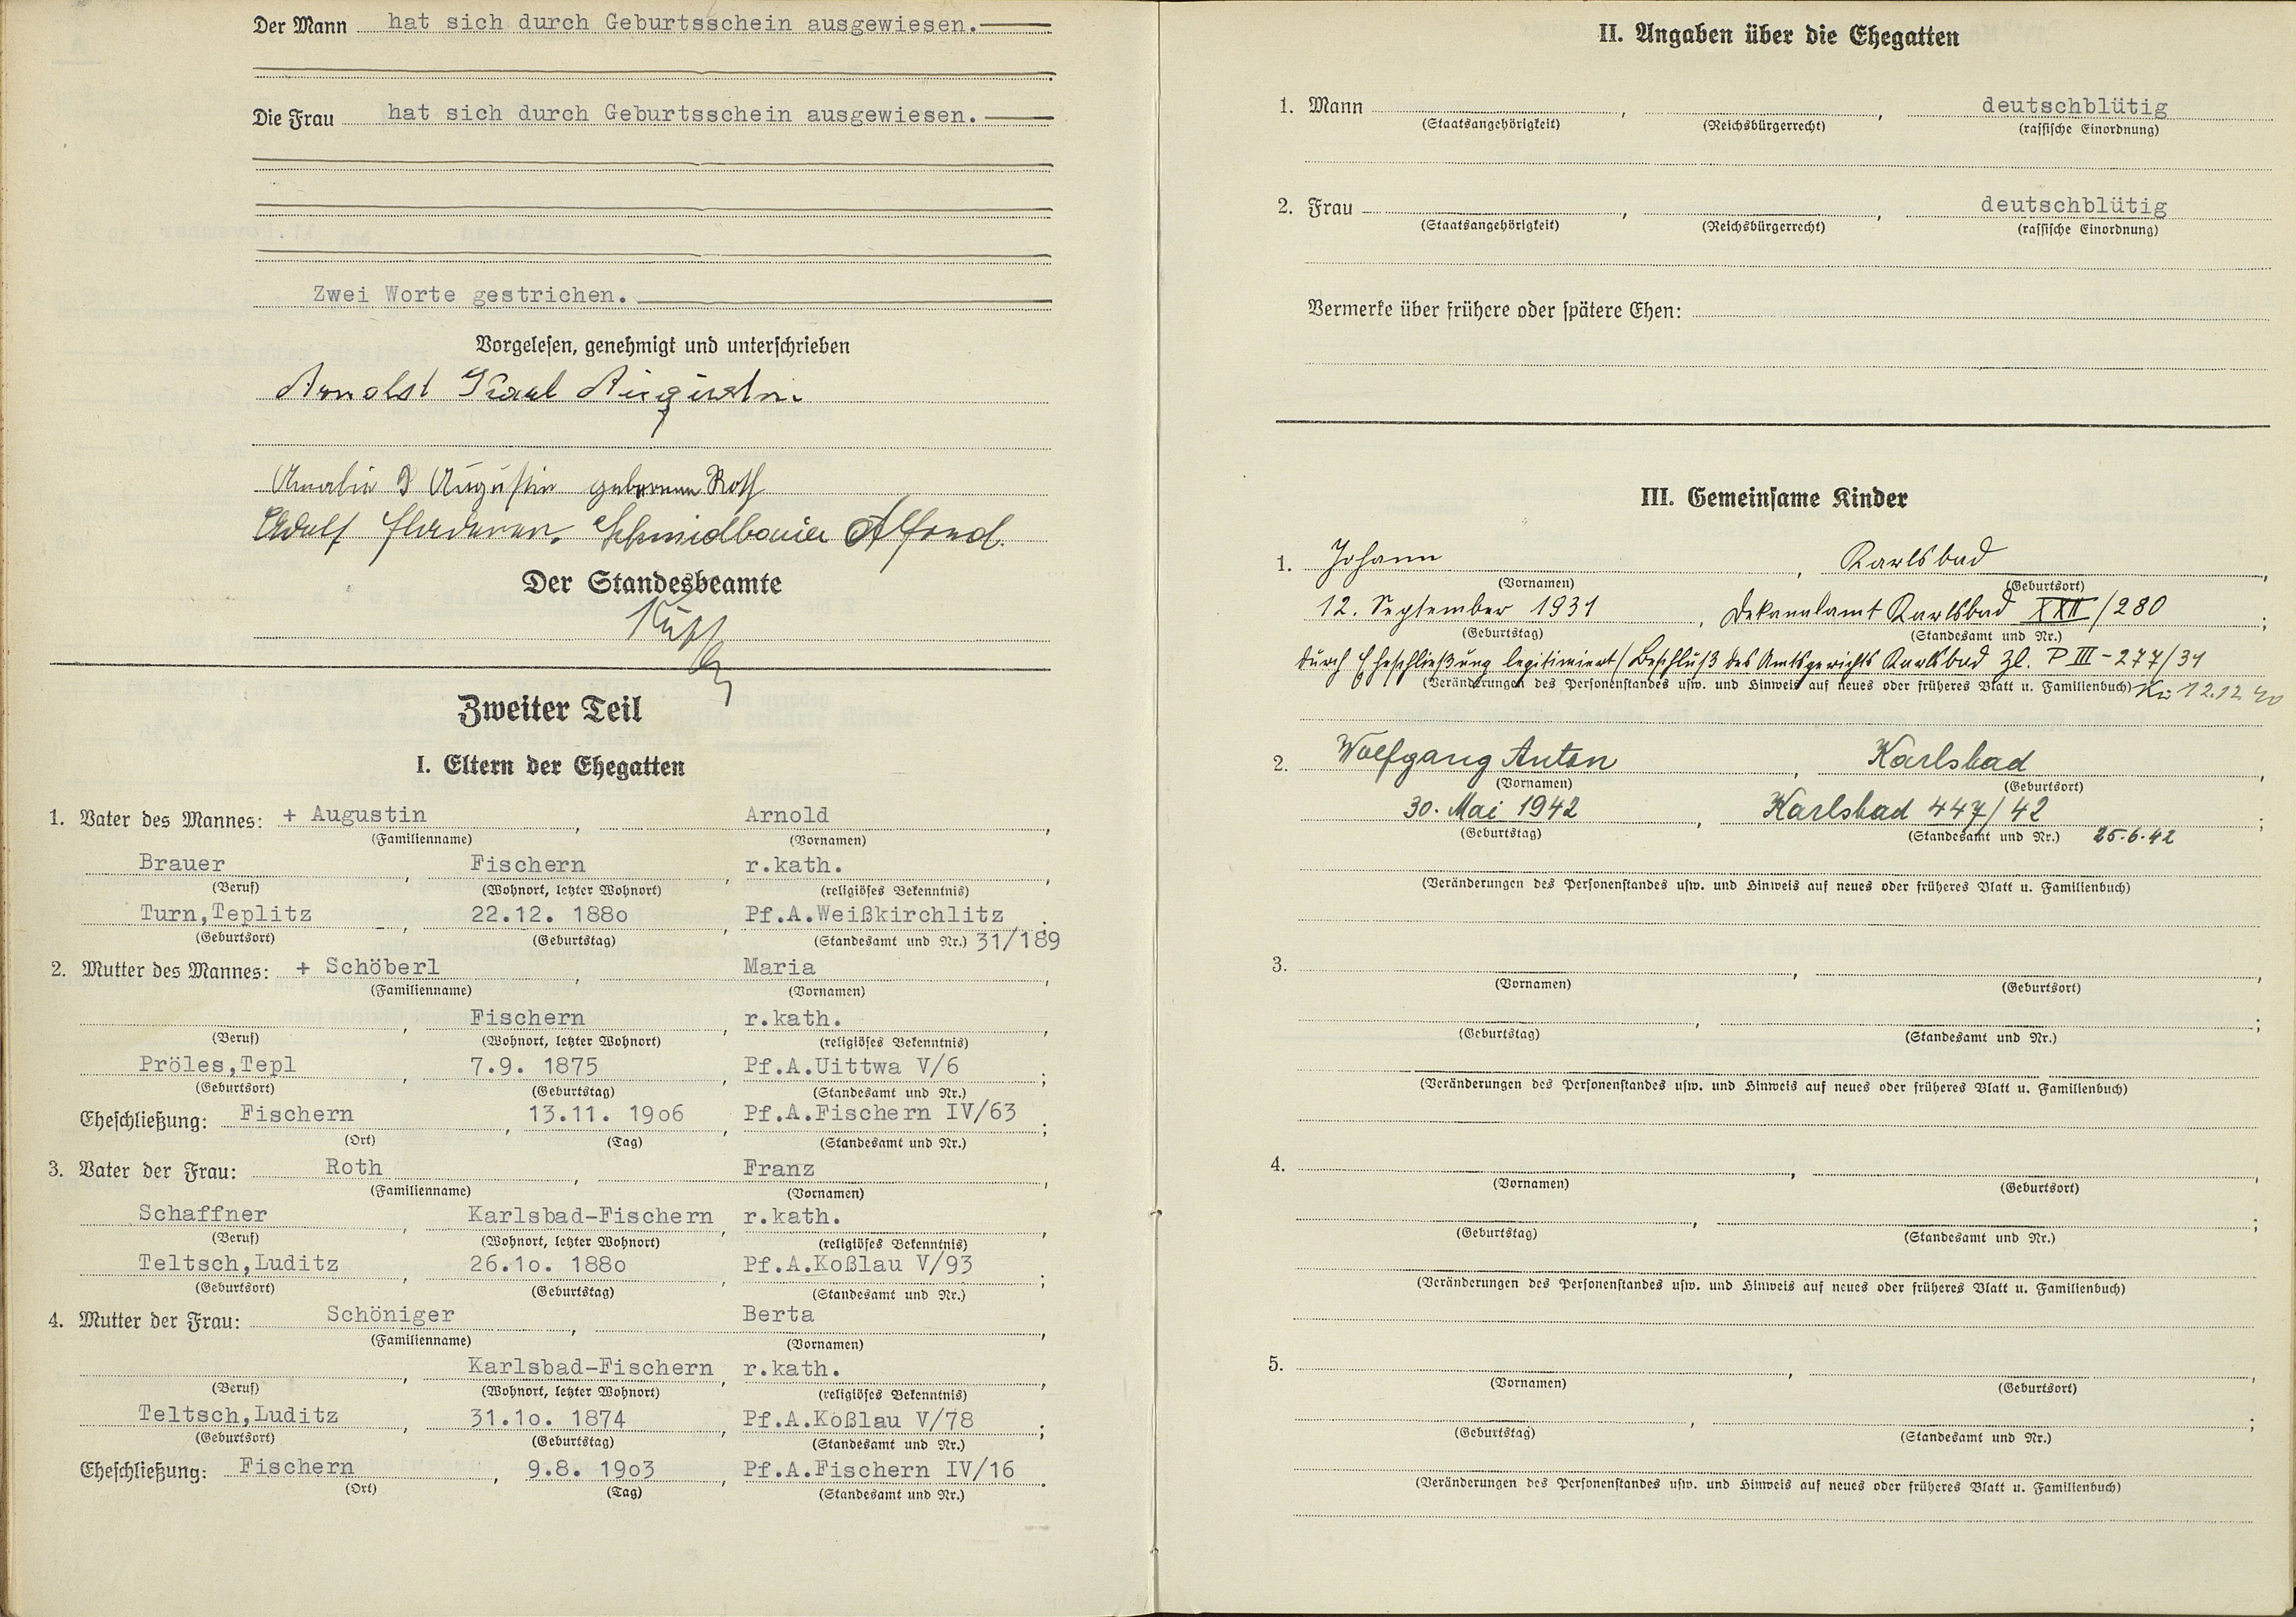 Der Mann hat sich durch Geburtsschein ausgewiesen.
Die Frau hat sich durch Geburtsschein ausgewiesen.
Zwei Worte gestrichen.
Vorgelesen, genehmigt und unterschrieben
Arnold Karl Augustin
Amalia Augustin geborene Roth
Adolf Schmidbauer Alfred
Der Standesbeamte
Zweiter Teil
I. Eltern der Ehegatten
1. Vater des Mannes: + Augustin, Arnold,
(Familienname) (Vornamen)
Brauer, Fischern, r.kath.,
(Beruf) (Wohnort, letzter Wohnort) (religiöses Bekenntnis)
Turn,Teplitz, 22.12. 188o, Pf.A.Weißkirchlitz;
(Geburtsort) (Geburtstag) (Standesamt und Nr.) 31/189
2. Mutter des Mannes: + Schöberl, Maria,
(Familienname) (Vornamen)
, Fischern, r.kath.,
(Beruf) (Wohnort, letzter Wohnort) (religiöses Bekenntnis)
Pröles,Tepl, 7.9. 1875, Pf.A.Uittwa V/6;
(Geburtsort) (Geburtstag) (Standesamt und Nr.)
Eheschließung: Fischern, 13.11. 19o6, Pf.A.Fischern IV/63;
(Ort) (Tag) (Standesamt und Nr.)
3. Vater der Frau: Roth, Franz,
(Familienname) (Vornamen)
Schaffner, Karlsbad-Fischern, r.kath.,
(Beruf) (Wohnort, letzter Wohnort) (religiöses Bekenntnis)
Teltsch,Luditz, 26.1o. 188o, Pf.A.Koßlau V/93;
(Geburtsort) (Geburtstag) (Standesamt und Nr.)
4. Mutter der Frau: Schöniger, Berta,
(Familienname) (Vornamen)
, Karlsbad-Fischern, r.kath.,
(Beruf) (Wohnort, letzter Wohnort) (religiöses Bekenntnis)
Teltsch,Luditz, 31.1o. 1874, Pf.A.Koßlau V/78;
(Geburtsort) (Geburtstag) (Standesamt und Nr.)
Eheschließung: Fischern, 9.8. 19o3, Pf.A.Fischern IV/16.
(Ort) (Tag) (Standesamt und Nr.)
II. Angaben über die Ehegatten
1. Mann , , deutschblütig
(Staatsangehörigkeit) (Reichsbürgerrecht) (rassische Einordnung)
2. Frau , , deutschblütig
(Staatsangehörigkeit) (Reichsbürgerrecht) (rassische Einordnung)
Vermerke über frühere oder spätere Ehen:
III. Gemeinsame Kinder
1. Johann, Karlsbad,
(Vornamen) (Geburtsort)
12. September 1931, Dekanalamt Karlsbad XXII/280;
(Geburtstag) (Standesamt und Nr.)
durch Eheschließung legitimiert (Beschluß des Amtsgerichts Karlsbad Zl. P III-277/31
(Veränderungen des Personenstandes usw. und Hinweis auf neues oder früheres Blatt u. Familienbuch) Kü 12.12.40
2. Wolfgang Anton, Karlsbad,
(Vornamen) (Geburtsort)
30. Mai 1942, Karlsbad 447/42;
(Geburtstag) (Standesamt und Nr.) 25.6.42
(Veränderungen des Personenstandes usw. und Hinweis auf neues oder früheres Blatt u. Familienbuch)
3. , ,
(Vornamen) (Geburtsort)
, ;
(Geburtstag) (Standesamt und Nr.)
(Veränderungen des Personenstandes usw. und Hinweis auf neues oder früheres Blatt u. Familienbuch)
4. , ,
(Vornamen) (Geburtsort)
, ;
(Geburtstag) (Standesamt und Nr.)
(Veränderungen des Personenstandes usw. und Hinweis auf neues oder früheres Blatt u. Familienbuch)
5. , ,
(Vornamen) (Geburtsort)
, ;
(Geburtstag) (Standesamt und Nr.)
(Veränderungen des Personenstandes usw. und Hinweis auf neues oder früheres Blatt u. Familienbuch)